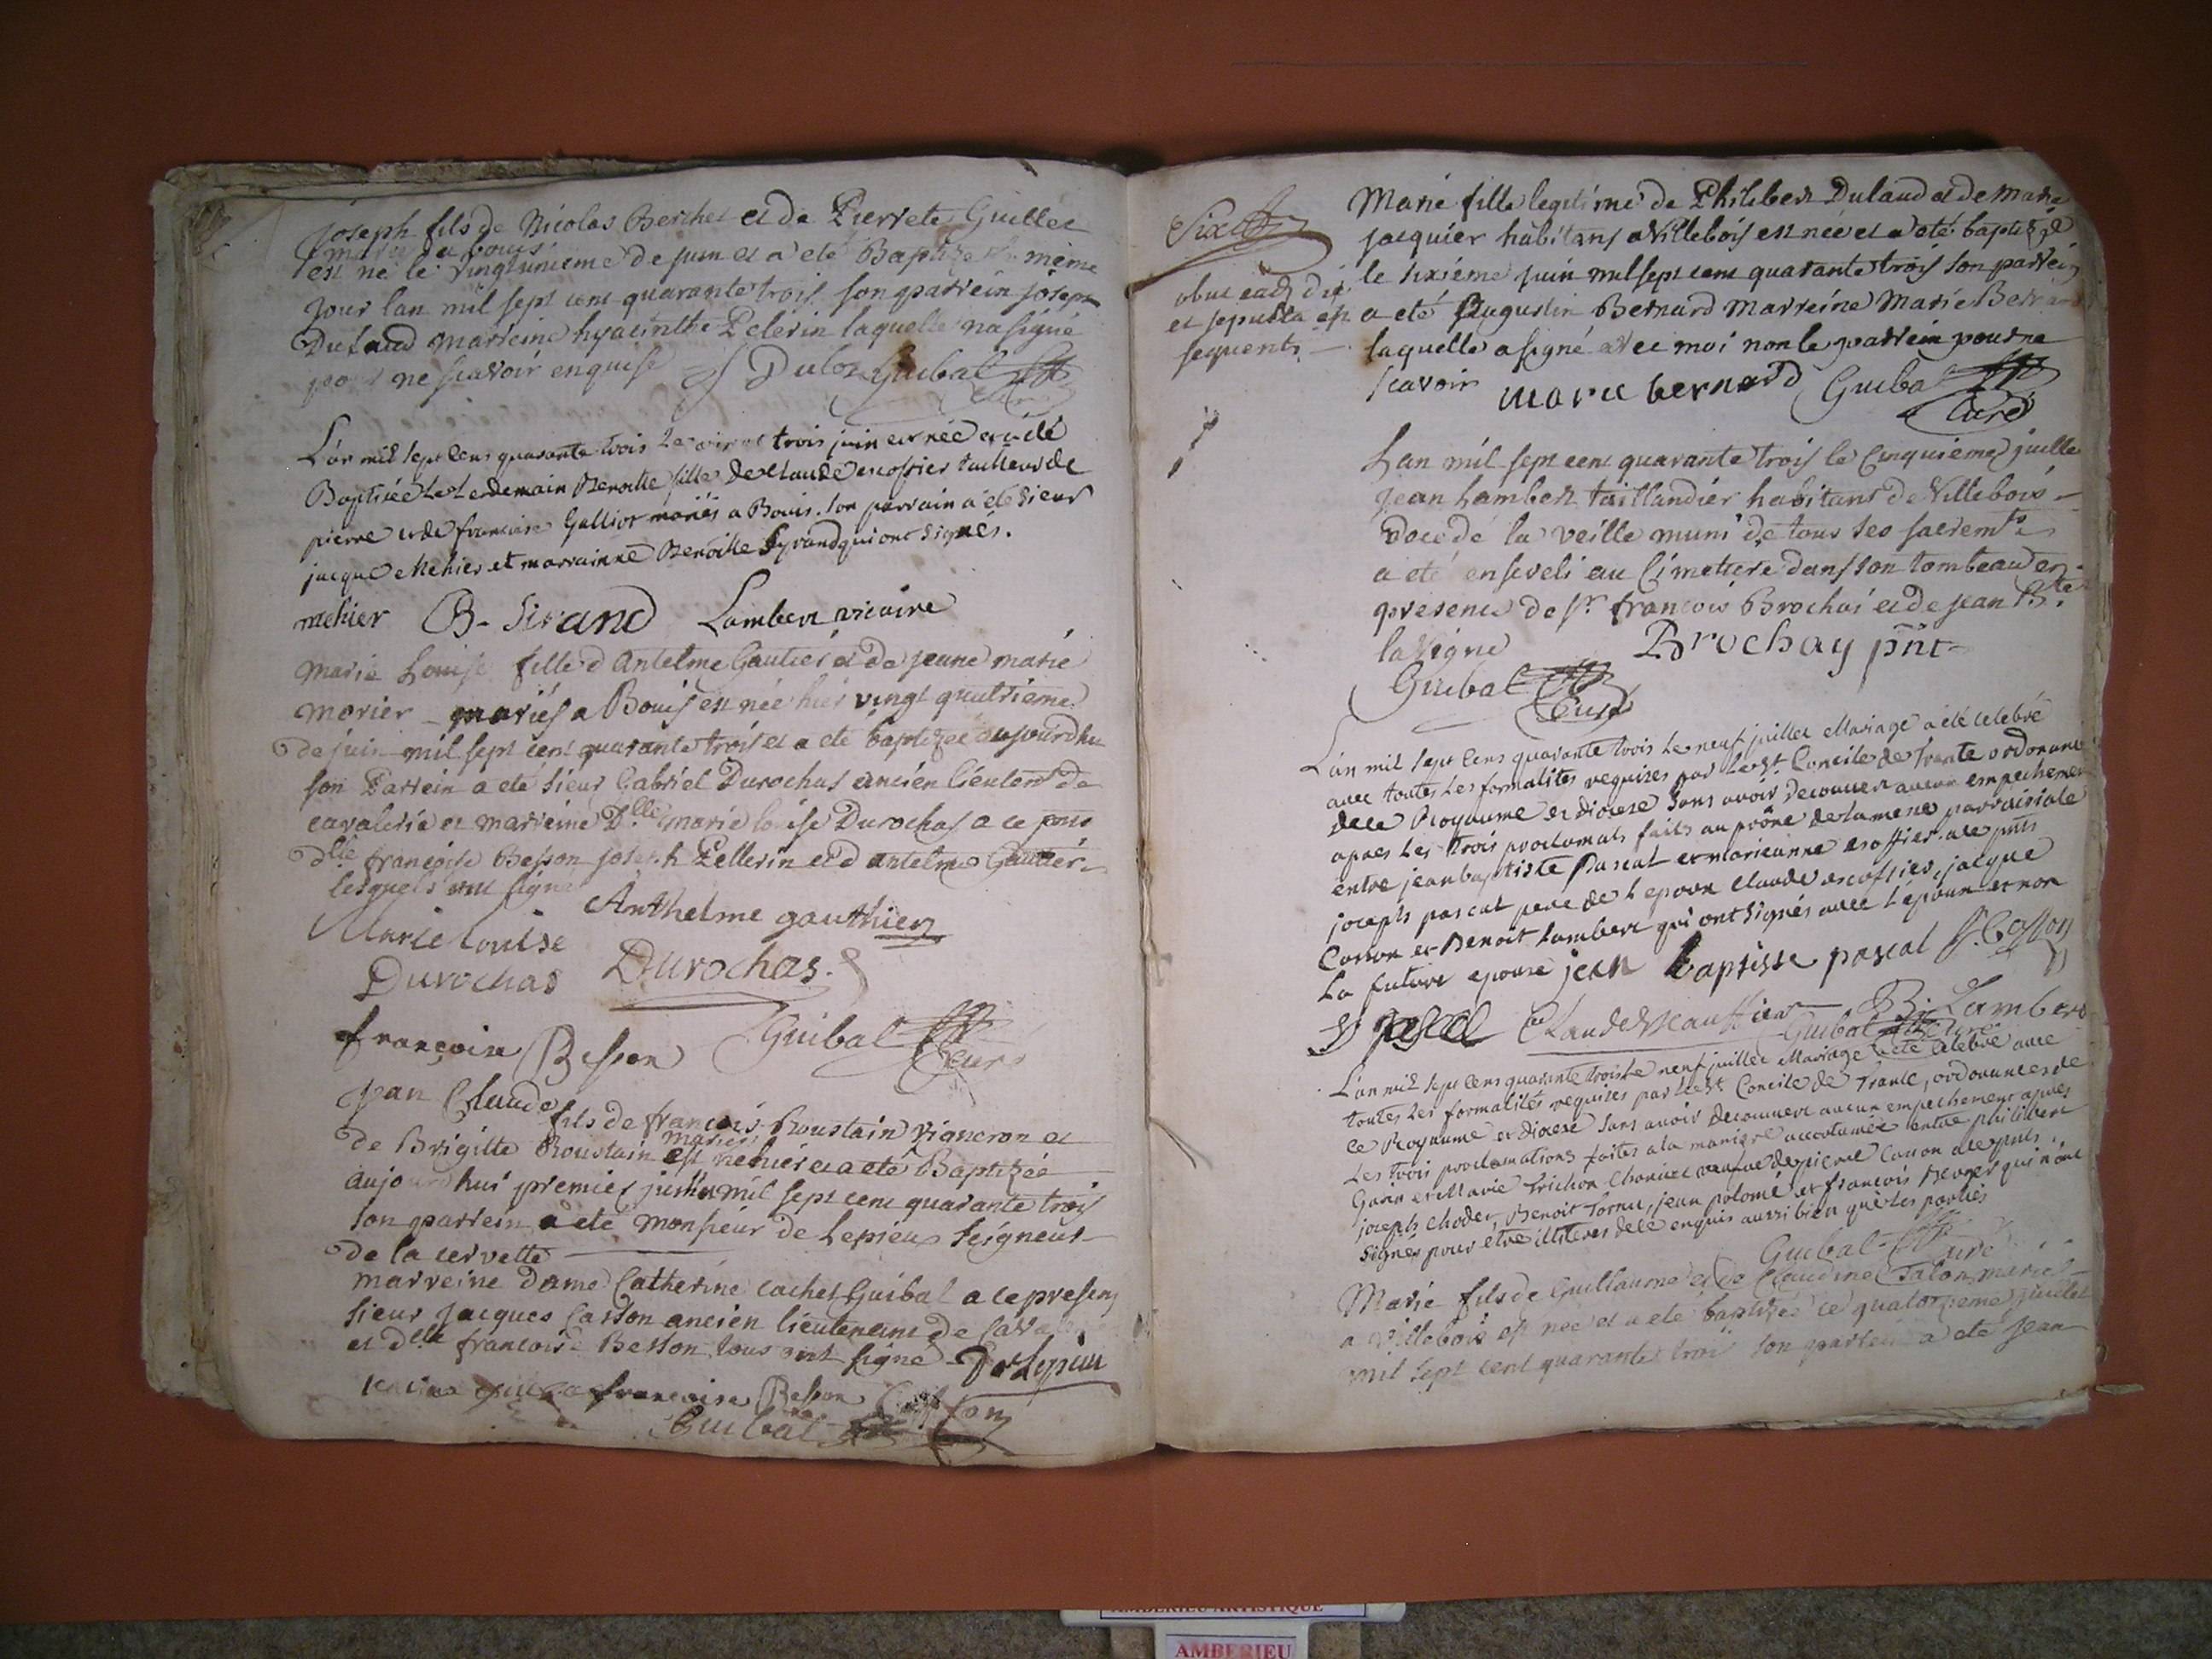 Joseph fils de Nicolas Berchet et de Pierrete Guillet
mariés a bouis
est né le vingtunieme de juin et a été Baptizé le même
jour lan mil sept cent quarante trois son parrein joseph
Dulaud marreine hyacinthe Pelerin laquelle na signé
pour ne scavoir enquise J Dulos Guibal
Curé
L'an mil sept cens quarante trois le vingt trois juin est née et a été
Baptisée le Lendemain Benoitte fille de Claude escoffier tailleur de
pierre et de francoise Galliot mariés a Bouis. son parrain a été sieur
jacque Mehier et marrainne Benoitte Syrand qui ont signés.
mehier B. Sirand Lambert vicaire
Marie Louise fille d Antelme Gautier et de jeane marie
morier mariés a Bouis est née hier vingt quatrieme
de juin mil sept cent quarante trois et a été baptizée aujourdhu
son Parrein a été sieur Gabriel Durochat ancien lieutent de
cavalerie et marreine Dlle marie louise Durochas a ce pnts
Dlle françoise Besson joseph Pellerin et d antelme Gautier
lesquels ont signé
Anthelme gauthier
Marie louise
Durochas Durochas.
françoise Besson Guibal
Curé
Jean Claude
fils de francois Roustain vigneron et
de Brigitte Roustain mariés est né hier et a été Baptizée
aujourdhui premier juillet mil sept cent quarante trois
son parrein a été monsieur de Lepieu seigneur
de la cervette
marreine dame Catherine cachet Guibal a ce presens
sieur jacques Casson ancien lieutenant de Cava
et dlle francoise Besson tous ont signé De Lepieu
francoise Besson Casson
Guibal
Sixt
obut ead die
et sepulta est
sequenti
Marie fille legitime de Philibert Dulaud et de Marie
jacquier habitans a Villebois est née et a été baptizée
le sixiéme juin mil sept cent quarante trois son parrein
a eté Augustin Bernard marreine Marie Bernard
laquelle a signé avec moi non le parrein pour ne
scavoir marie bernard Guibal
Curé
Lan mil sept cent quarante trois le cinquieme juille
Jean Lambert taillandier habitant de Villebois
décédé la veille muni de tous ses sacremts
a eté enseveli au Cimetiere dans son tombeau en
presence de sr francois Brochai et de jean Bte
lavigne Brochay pnt
Guibal
Curé
L'an mil sept cens quarante trois le neuf juillet Mariage a été celebré
avec toutes les formalités requises par le st Concile de trente ordonance
de ce Royaume et diocese sans avoir decouvert aucun empechement
apres les trois proclamats faits au prône de la messe parroissiale
entre jean baptiste Pascal et marieanne escoffier. a ce pnts
joseph pascal pere de l epoux Claude escoffier, jacque
Casson et Benoit Lambert qui ont signés avec l epoux et non
la future epouse jean baptisse pascal J. Casson
Claude escauffier B. Lambert
Guibal Curé
L'an mil sept cens quarante trois le neuf juillet Mariage a été celebré avec
toutes les formalités requises par le st Concile de trante, ordonances de
ce Royaume et diocese sans avoir decouvert aucun empechement apres
les trois proclamations faites a la maniere accoutumée entre philibert
Garin et Marie Trichon veufve de pierre Casson a ce pnts
joseph Choder, Benoit Tornu, jean polome et francois Berger qui n'ont
signés pour être illiterés de ce enquis aussi bien que les parties
Guibal
Curé
Marie fils de Guillaume et de Claudine Talon mariés
a Villebois est née et a eté baptizée le quatorzieme juillet
mil sept cent quarante trois son parrein a eté jean
AMBERIEU ARTISTIQUE
AMBERIEU